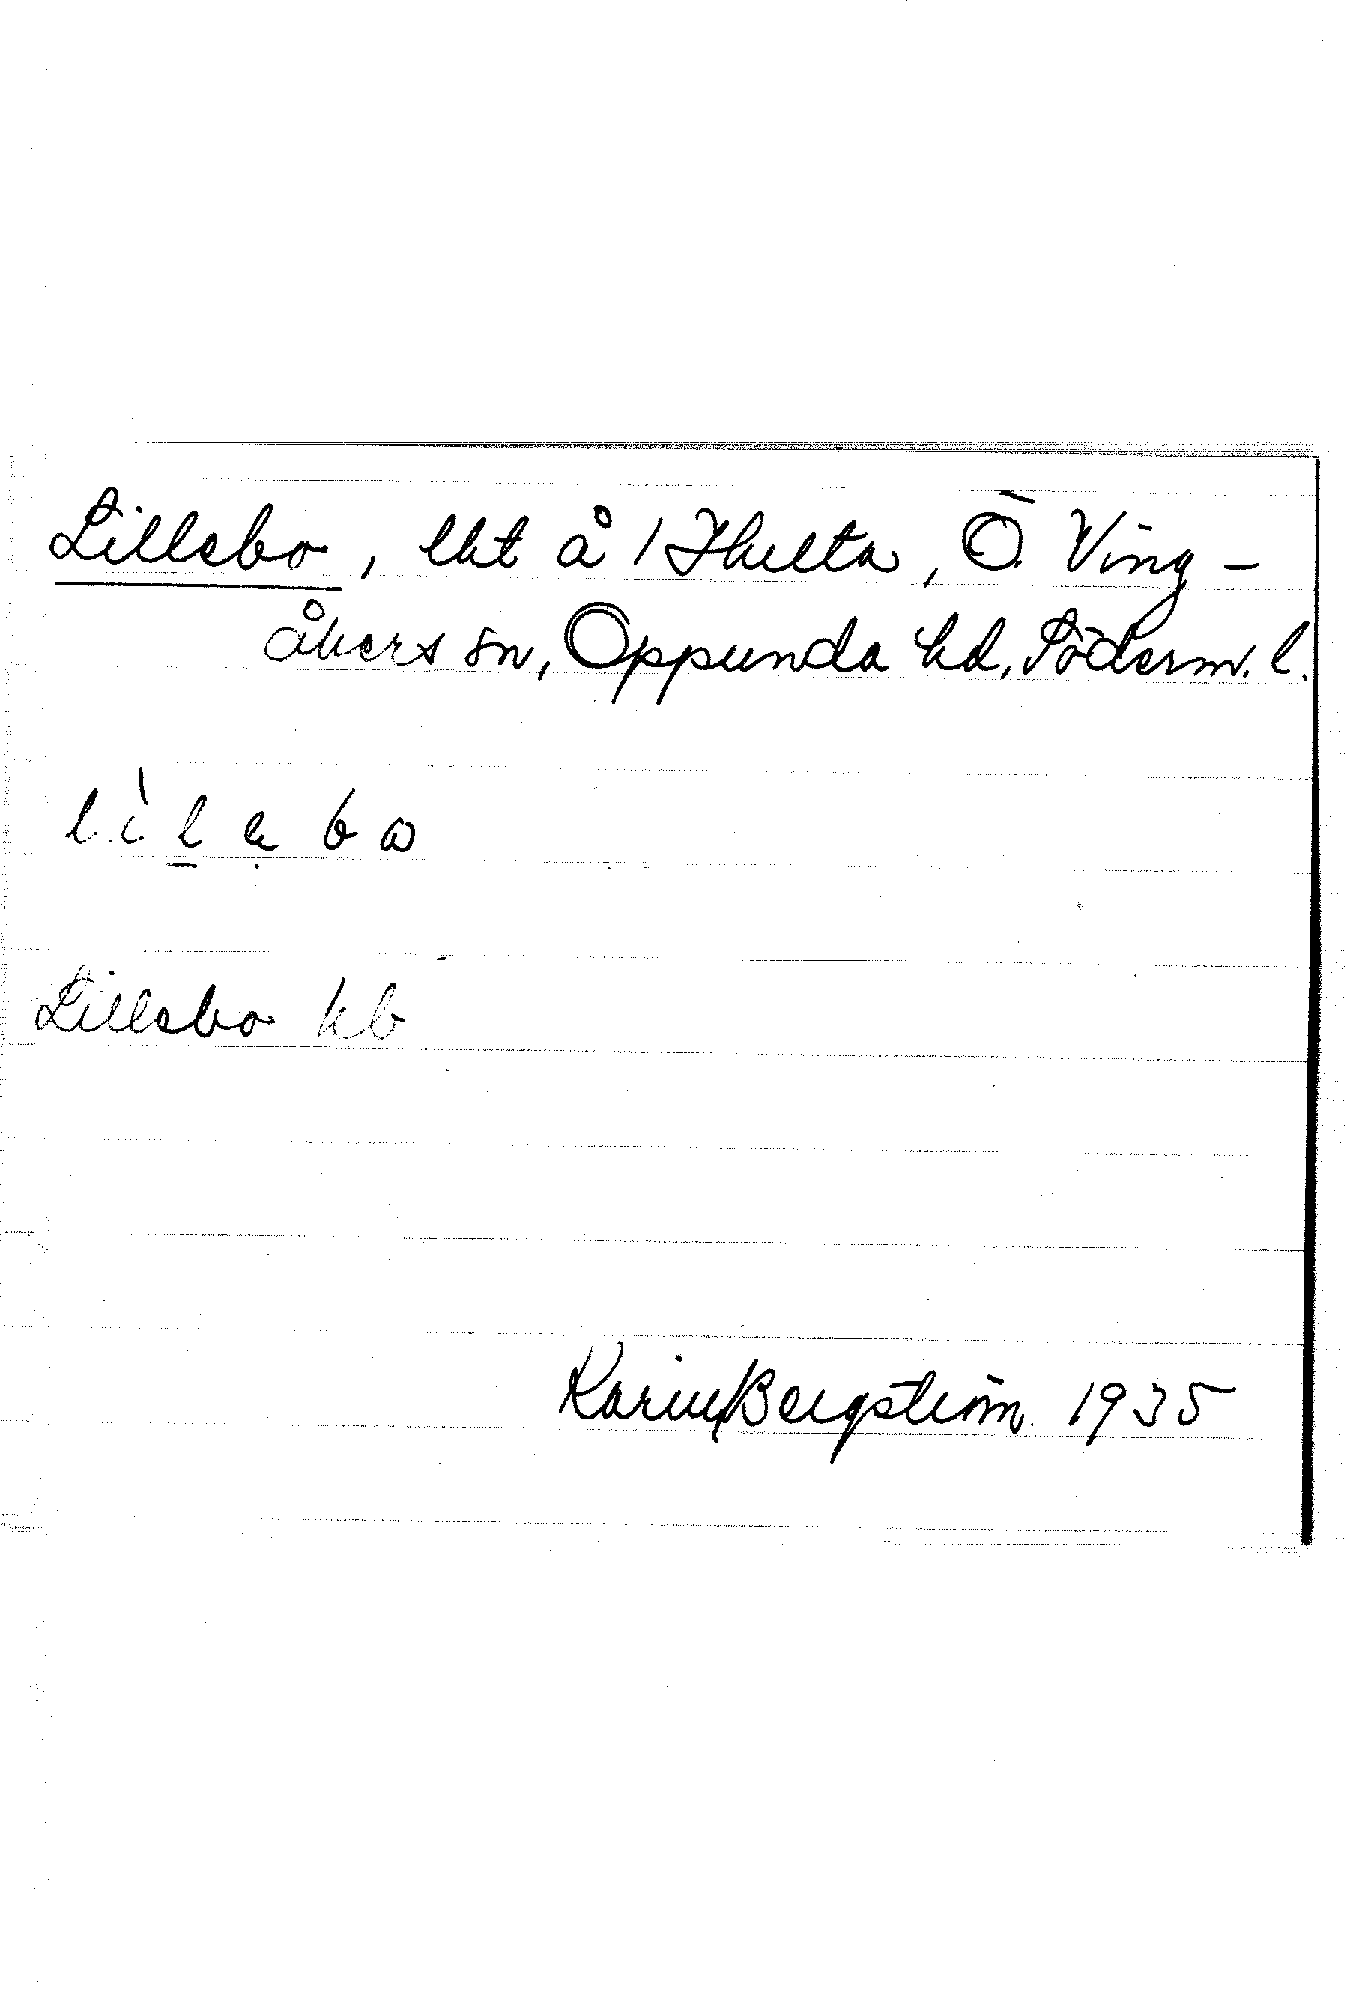 Lillebo, lht å 1 Hulta, Ö. Ving-
åkers sn, Oppunda hd, Söderm. l.
Lillebo kb
Karin Bergström 1935